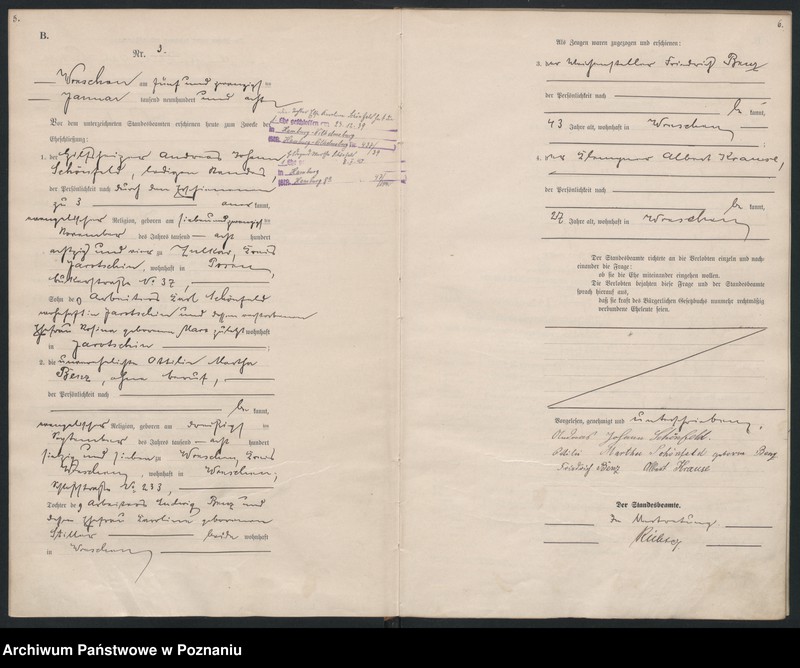 5.
B.
Nr. 3.
Wreschen am fünf und zwanzigsten
Januar tausend neunhundert und acht
Vor dem unterzeichneten Standesbeamten erschienen heute zum Zwecke der
Eheschließung:
1. der Andreas Johann
Schönfeld, ledigen Standes,
der Persönlichkeit nach durch den
zu 3 aner kannt,
evangelischer Religion, geboren am sieben und zwanzigsten
November des Jahres tausend acht hundert
achtzig und vier zu Kreis
Jarotschin, wohnhaft in Posen,
No 37,
Sohn des Arbeiters Karl Schönfeld
wohnhaft in Jarotschin und dessen verstorbenen
Ehefrau Rosine geborenen zuletzt wohnhaft
in Jarotschin
2. die unverehelichte Ottilie Martha
Benz, ohne Beruf,
der Persönlichkeit nach
be kannt,
evangelischer Religion, geboren am dreißigsten
September des Jahres tausend acht hundert
siebzig und sieben zu Wreschen, Kreis
Wreschen, wohnhaft in Wreschen,
Schloßstraße No 233,
Tochter des Arbeiters Ludwig Benz und
dessen Ehefrau Karoline geborenen
beide wohnhaft
in Wreschen
Hamburg
Hamburg
6.
Als Zeugen waren zugezogen und erschienen:
3. der Weichensteller Friedrich Benz
der Persönlichkeit nach
be kannt,
43 Jahre alt, wohnhaft in Wreschen
4. der Klempner Albert Krause,
der Persönlichkeit nach
be kannt,
27 Jahre alt, wohnhaft in Wreschen
Der Standesbeamte richtete an die Verlobten einzeln und nach-
einander die Frage:
ob sie die Ehe miteinander eingehen wollen.
Die Verlobten bejahten diese Frage und der Standesbeamte
sprach hierauf aus,
daß sie kraft des Bürgerlichen Gesetzbuchs nunmehr rechtmäßig
verbundene Eheleute seien.
Vorgelesen, genehmigt und unterschrieben,
Andreas Johann Schönfeld.
Ottilie Martha Schönfeld geborene Benz
Friedrich Benz Albert Krause
Der Standesbeamte.
In Vertretung
Archiwum Państwowe w Poznaniu